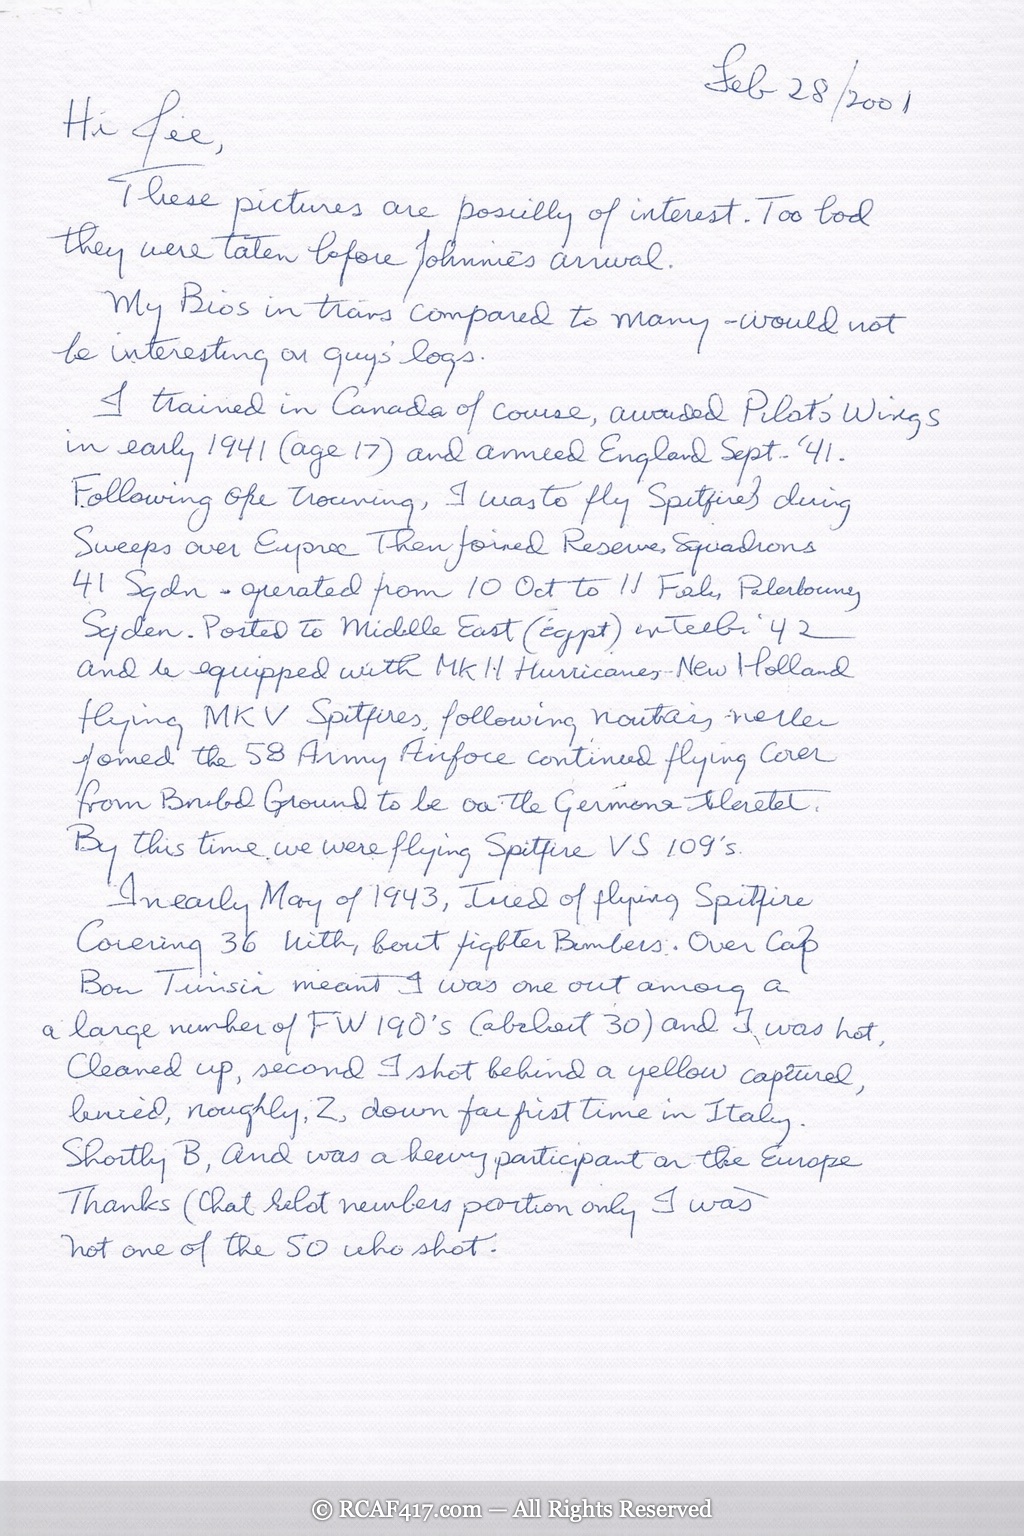 Feb 28/2001
Hi
These pictures are of interest. Too bad
they were taten before Johnnie's arrival.
My Bios in compared to many - would not
be interesting on guys' logs.
I trained in Canada of course, awarded Pilots Wings
in early 1941 (age 17) and England Sept. '41.
Following I was to fly Spitfires
Sweeps over Then joined Reserve Squadrons
41 Sqdn - operated from 10 Oct to 11
Sqden. Posted to Middle East (Egypt) '42
and equipped with MK II Hurricanes New Holland
flying MK V Spitfires, following
joined the 58 Army Airfoce continued flying Cover
from Ground to be the Germans
By this time we were flying Spitfire VS 109's.
In early May of 1943, of flying Spitfire
Covering 36 fighter Bombers. Over Cap
Bon meant I was one out among a
a large number of FW 190's 30) and I was hot,
Cleaned up, second I shot behind a yellow captured,
roughly, 2, down first time in Italy.
Shortly B, and was a heavy participant on the Europe
Thanks (that numbers portion only I was
not one of the 50 who shot.
© RCAF417.com — All Rights Reserved